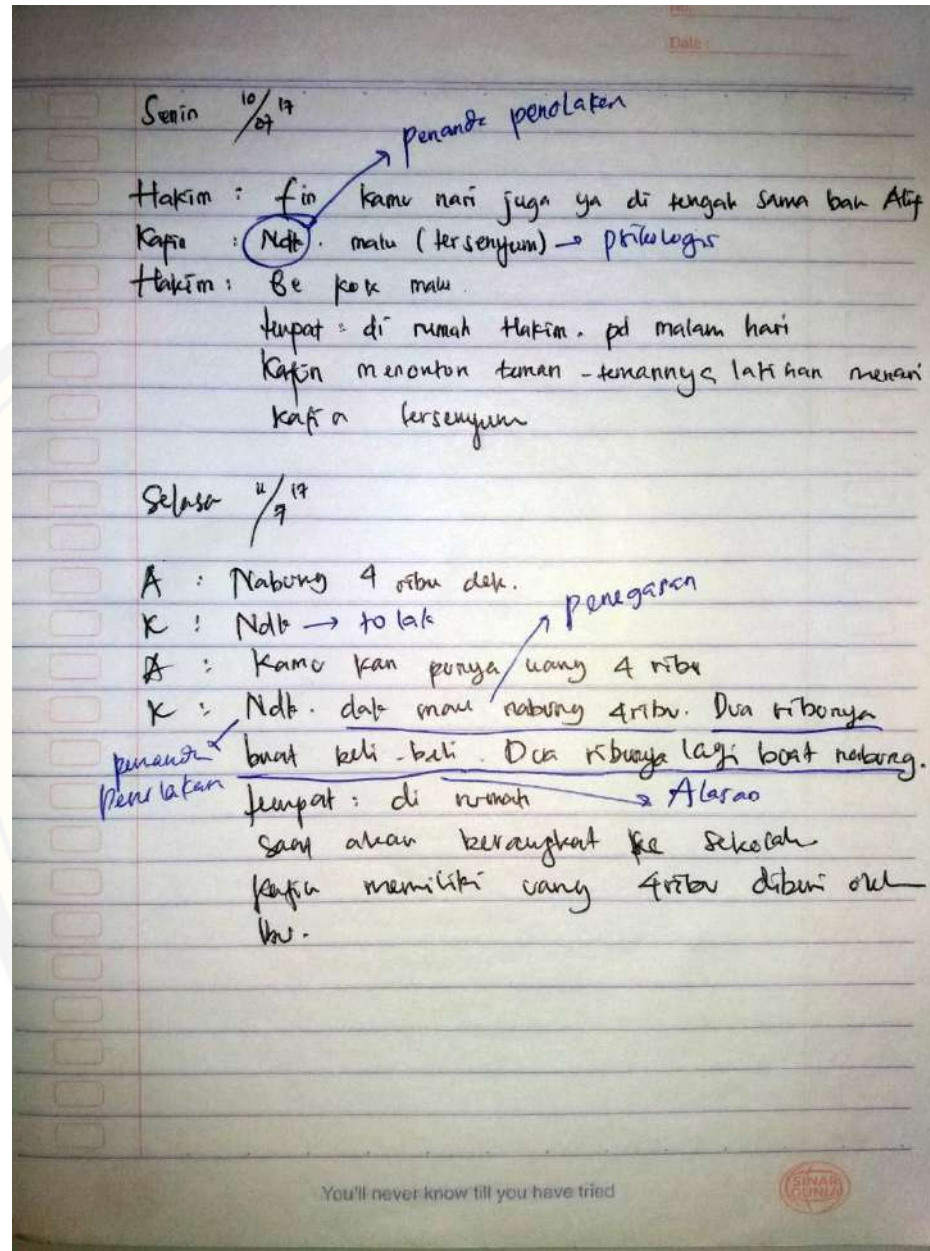 No:
Date :
Senin 10/07 17
penanda penolakan
Hakim : fin kamu nari juga ya di tengah sama bak Atif
Kafin : Ndk. malu (tersenyum) → psikologis
Hakim : Be kok malu.
tempat : di rumah Hakim. pd malam hari
Kafin menonton teman-temannya latihan menari
Kafin tersenyum
Selasa 11/7 17
A : Nabung 4 ribu dek.
K : Ndk → tolak
penegasan
A : Kamu kan punya uang 4 ribu
K : Ndk. dak mau nabung 4ribu. Dua ribunya
penanda penolakan
buat beli-beli. Dua ribunya lagi buat nabung.
tempat : di rumah → Alasan
saat akan berangkat ke sekolah
Kafin memiliki uang 4ribu diberi oleh
Ibu.
You'll never know till you have tried
SINAR DUNIA